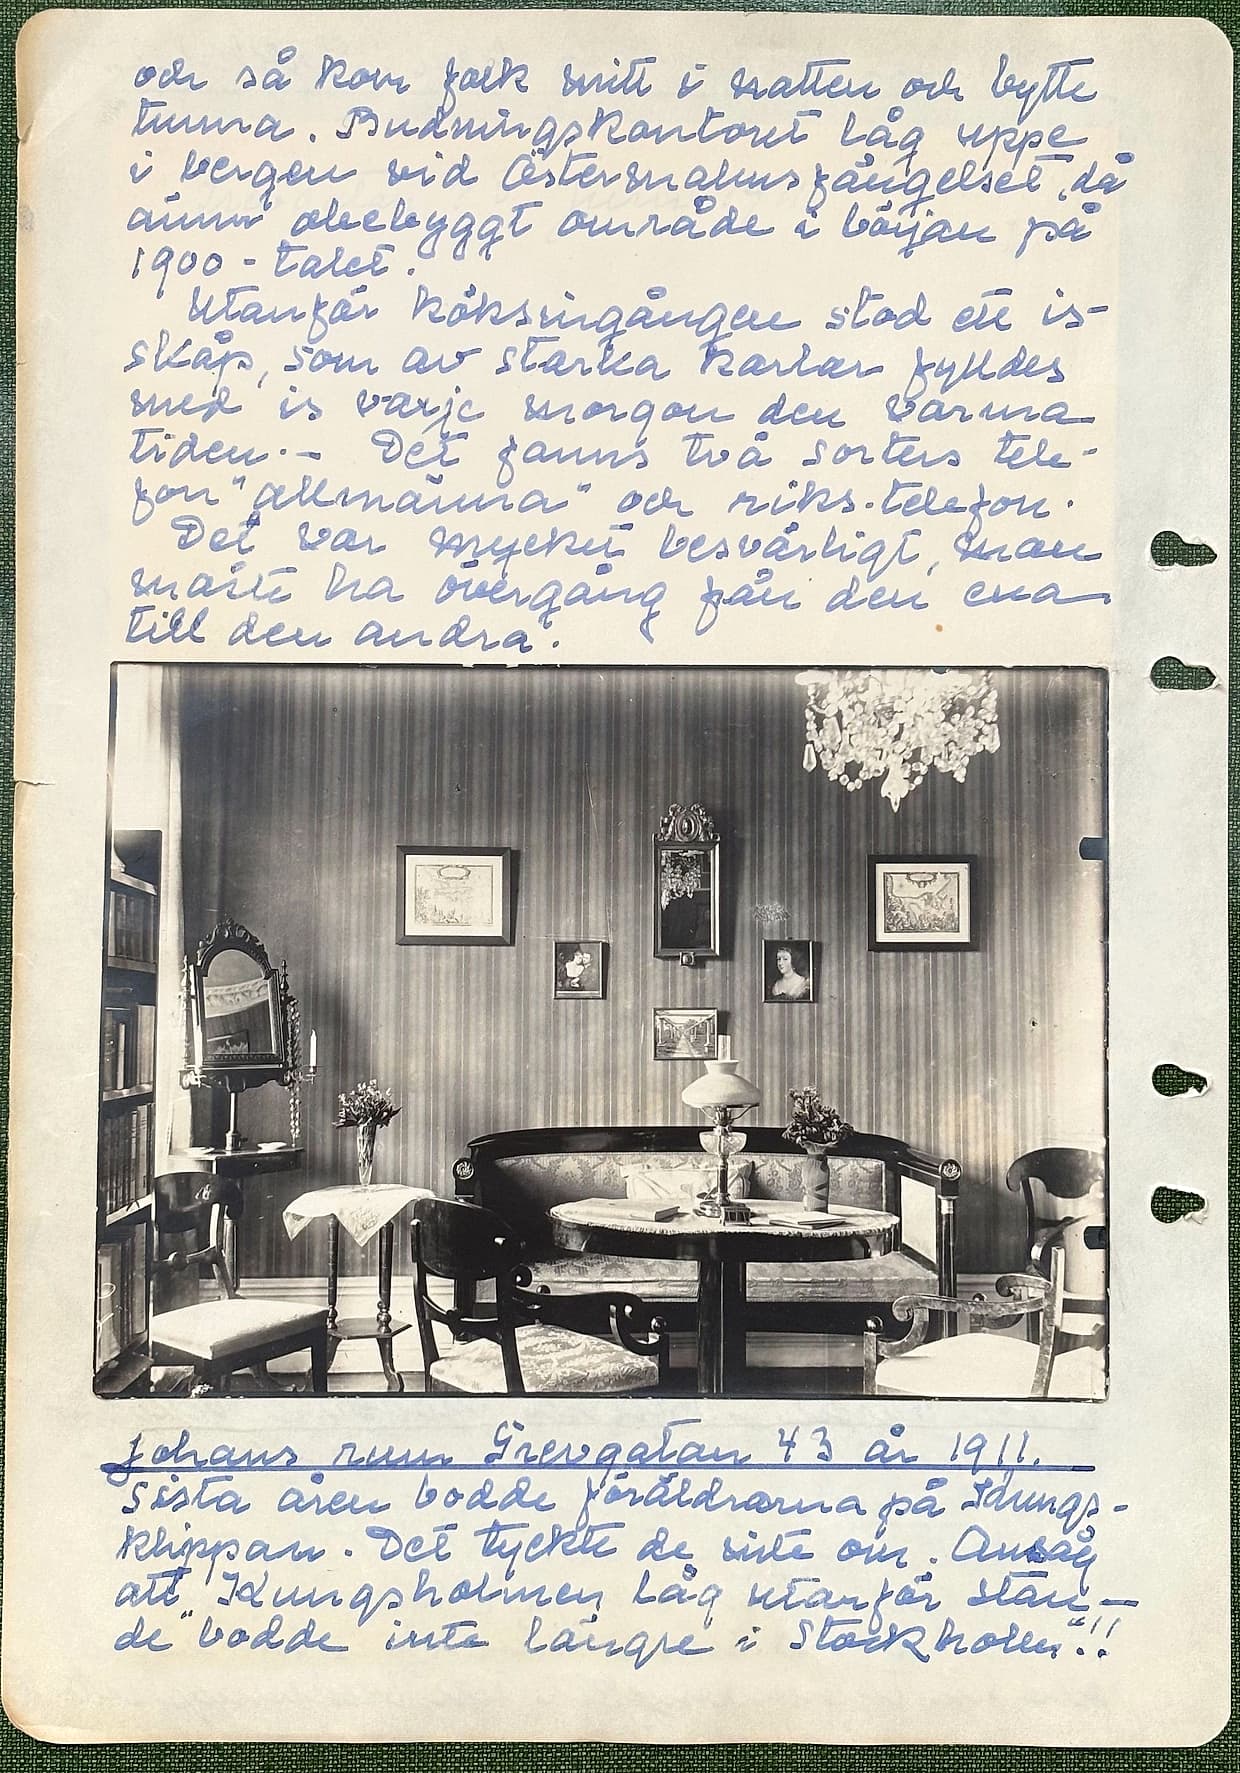 och så kom folk mitt i natten och bytte
tunna. Budningskontoret låg uppe
i bergen vid Östermalmsfängelset, då
ännu obebyggt område i början på
1900-talet.
Utanför köksingången stod ett is-
skåp, som av starka karlar fylldes
med is varje morgon den varma
tiden.- Det fanns två sorters tele-
fon "allmänna" och riks.telefon.
Det var mycket besvärligt, man
måste ha övergång från den ena
till den andra.
Johans rum Grevgatan 43 år 1911.
Sista åren bodde föräldrarna på Kungs-
klippan. Det tyckte de inte om. Ansåg
att Kungsholmen låg utanför stan-
de "bodde inte längre i Stockholm"!!